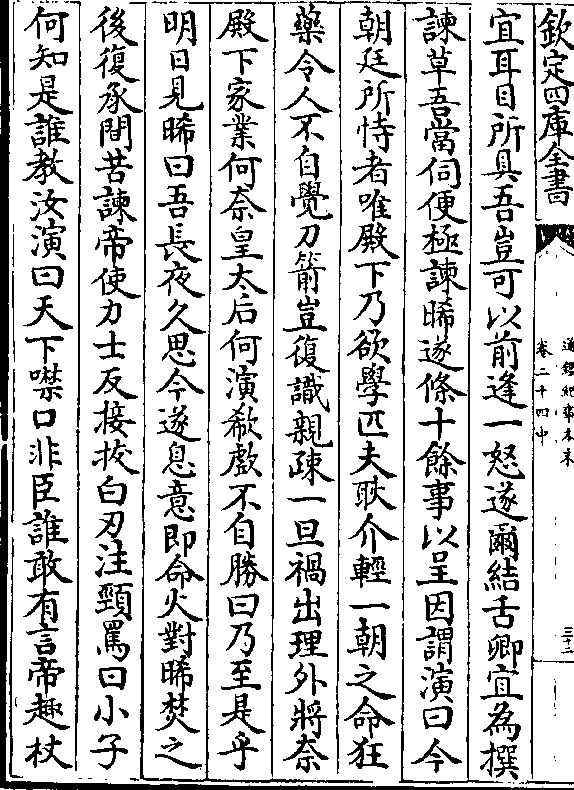 欽定四庫全書
通鑑紀事本末
卷二十四中
三十二
宜耳目所具吾豈可以前逢一怒遂爾結舌卿宜為撰
諫草吾當伺便極諫晞遂條十餘事以呈因謂演曰今
朝廷所恃者唯殿下乃欲學匹夫耿介輕一朝之命狂
藥令人不自覺刀箭豈復識親疎一旦禍出理外將奈
殿下家業何奈皇太后何演欷歔不自勝曰乃至是乎
明日見晞曰吾長夜久思今遂息意即命火對晞焚之
後復承間苦諫帝使力士反接拔白刃注頸罵曰小子
何知是誰教汝演曰天下噤口非臣誰敢有言帝趣杖